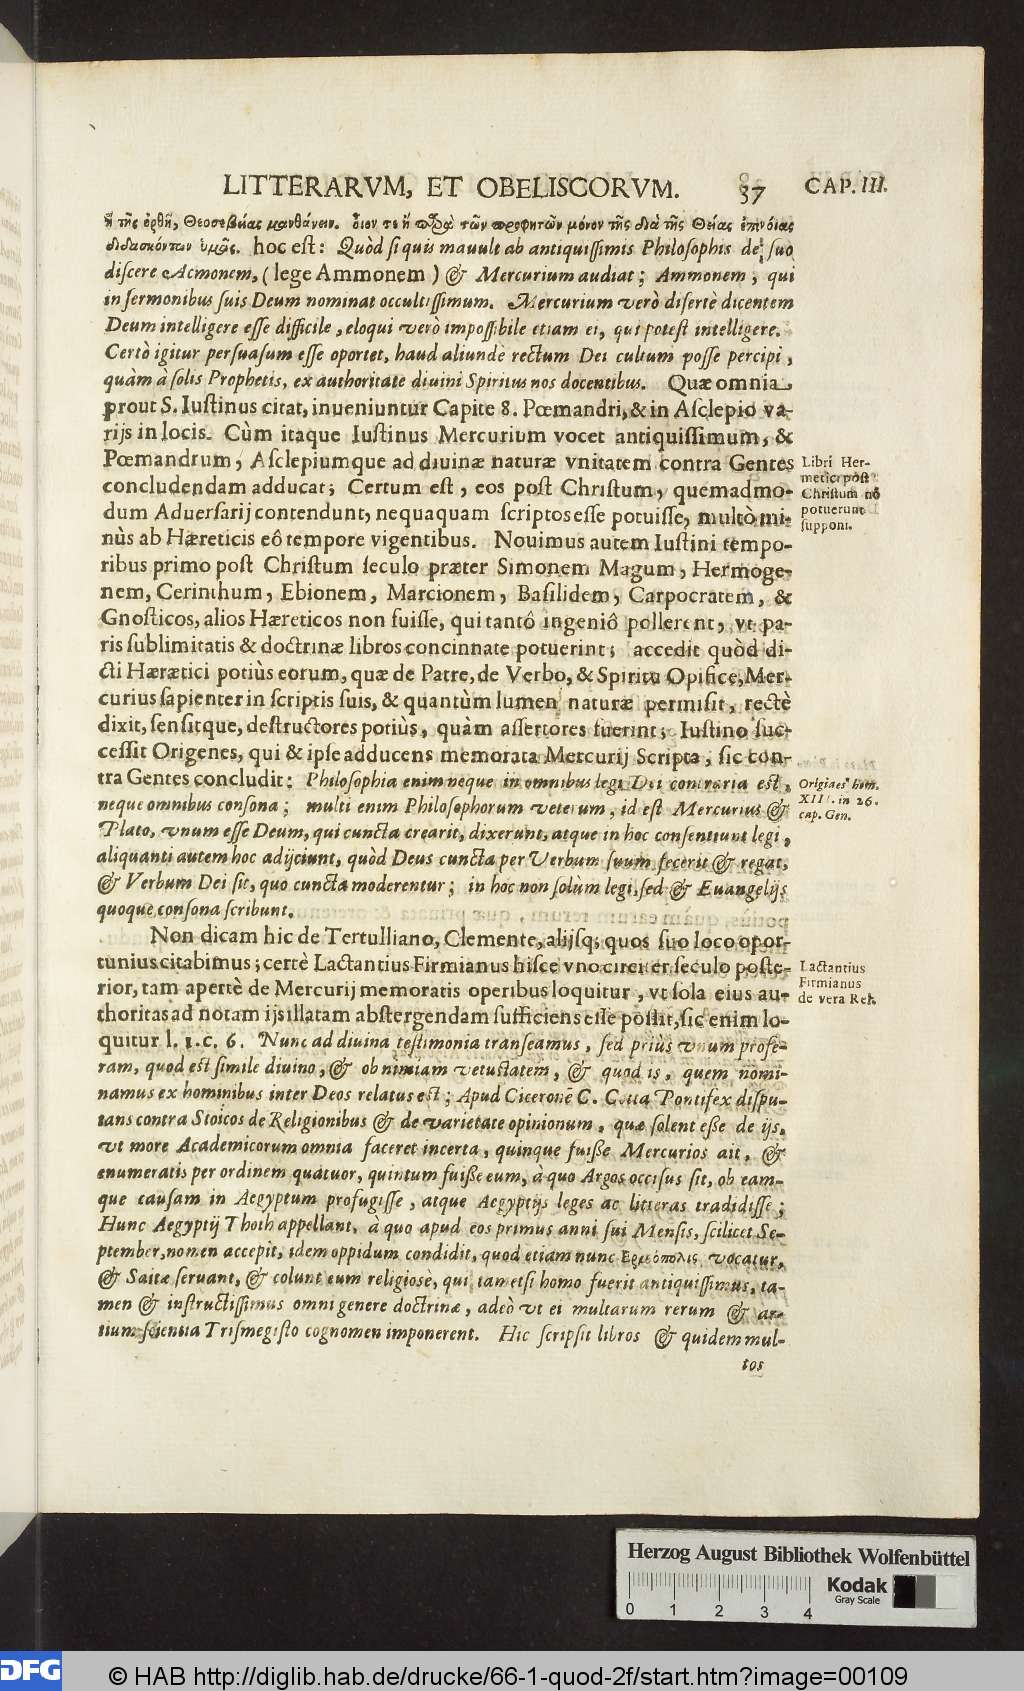 LITTERARVM, ET OBELISCORVM. 37 CAP. III.
ἢ τῆς ὀρθῆ, Θεοσεβείας μανθάνειν. οἷον τε ἢ παρὰ τῶν προφητῶν μόνον τῆς διὰ τῆς Θείας ἐπινοίας
διδασκόντων ὑμᾶς. hoc est: Quòd si quis mauult ab antiquissimis Philosophis de suo
discere Acmonem, (lege Ammonem) & Mercurium audiat; Ammonem, qui
in sermonibus suis Deum nominat occultissimum. Mercurium verò disertè dicentem
Deum intelligere esse difficile, eloqui verò impossibile etiam ei, qui potest intelligere.
Certò igitur persuasum esse oportet, haud aliundè rectum Dei cultum posse percipi,
quàm à solis Prophetis, ex authoritate diuini Spiritus nos docentibus. Quæ omnia,
prout S. Iustinus citat, inueniuntur Capite 8. Pœmandri, & in Asclepio va-
rijs in locis. Cùm itaque Iustinus Mercurium vocet antiquissimum, &
Pœmandrum, Asclepiumque ad diuinæ naturæ vnitatem contra Gentes
concludendam adducat; Certum est, eos post Christum, quemadmo-
dum Aduersarij contendunt, nequaquam scriptos esse potuisse, multò mi-
nùs ab Hæreticis eô tempore vigentibus. Nouimus autem Iustini tempo-
ribus primo post Christum seculo præter Simonem Magum, Hermoge-
nem, Cerinthum, Ebionem, Marcionem, Basilidem, Carpocratem, &
Gnosticos, alios Hæreticos non fuisse, qui tantô ingeniô pollerent, vt pa-
ris sublimitatis & doctrinæ libros concinnate potuerint; accedit quòd di-
cti Hærætici potiùs eorum, quæ de Patre, de Verbo, & Spiritu Opifice, Mer-
curius sapienter in scriptis suis, & quantùm lumen naturæ permisit, rectè
dixit, sensitque, destructores potiùs, quàm assertores fuerint; Iustino suc-
cessit Origenes, qui & ipse adducens memorata Mercurij Scripta, sic con-
tra Gentes concludit: Philosophia enim neque in omnibus legi Dei contraria est,
neque omnibus consona; multi enim Philosophorum veterum, id est Mercurius &
Plato, vnum esse Deum, qui cuncta crearit, dixerunt, atque in hoc consentiunt legi,
aliquanti autem hoc adijciunt, quòd Deus cuncta per Verbum suum fecerit & regat,
& Verbum Dei sit, quo cuncta moderentur; in hoc non solùm legi, sed & Euangelijs
quoque consona scribunt.
Non dicam hic de Tertulliano, Clemente, alijsq; quos suo loco opor-
tunius citabimus; certè Lactantius Firmianus hisce vno circiter seculo poste-
rior, tam apertè de Mercurij memoratis operibus loquitur, vt sola eius au-
thoritas ad notam ijs illatam abstergendam sufficiens esse possit, sic enim lo-
quitur l. 1. c. 6. Nunc ad diuina testimonia transeamus, sed priùs vnum profe-
ram, quod est simile diuino, & ob nimiam vetustatem, & quod is, quem nomi-
namus ex hominibus inter Deos relatus est; Apud Ciceronē C. Cotta Pontifex dispu-
tans contra Stoicos de Religionibus & de varietate opinionum, quæ solent esse de ijs,
vt more Academicorum omnia faceret incerta, quinque fuisse Mercurios ait, &
enumeratis per ordinem quatuor, quintum fuisse eum, à quo Argos occisus sit, ob eam-
que causam in Aegyptum profugisse, atque Aegyptijs leges ac litteras tradidisse;
Hunc Aegyptij Thoth appellant, à quo apud eos primus anni sui Mensis, scilicet Se-
ptember, nomen accepit, idem oppidum condidit, quod etiam nunc Ερμόπολις vocatur,
& Saitæ seruant, & colunt eum religiosè, qui tametsi homo fuerit antiquissimus, ta-
men & instructissimus omni genere doctrinæ, adeò vt ei multarum rerum & ar-
tium scientia Trismegisto cognomen imponerent. Hic scripsit libros & quidem mul-
tos
Libri Her-
metici pòst
Christum nō
potuerunt
supponi.
Origines hom.
XIII. in 26.
cap. Gen.
Lactantius
Firmianus
de vera Rel.
Herzog August Bibliothek Wolfenbüttel
Kodak
Gray Scale
0 1 2 3 4
DFG © HAB http://diglib.hab.de/drucke/66-1-quod-2f/start.htm?image=00109